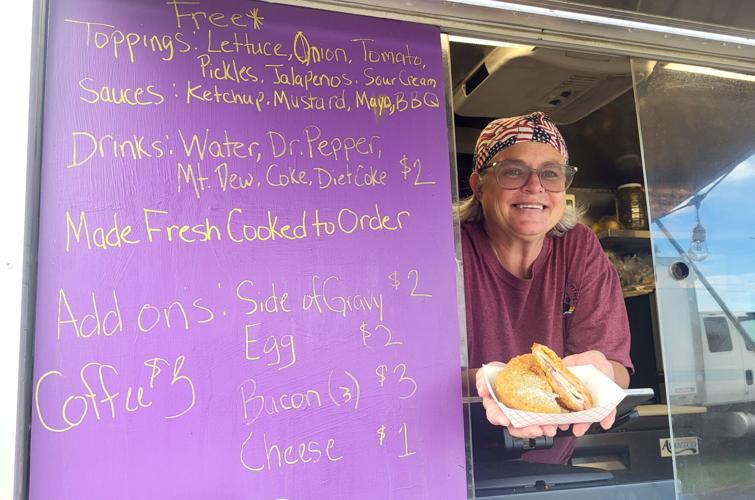 Free*
Toppings: Lettuce, Onion, Tomato,
Pickles, Jalapenos. Sour Cream
Sauces: Ketchup. Mustard, Mayo, BBQ
Drinks: Water, Dr. Pepper,
Mt. Dew. Coke, Diet Coke $2
Made Fresh Cooked to Order
Add ons: Side of Gravy $2
Egg $2
Coffee $3
Bacon (3) $3
Cheese $1
AVANTCO